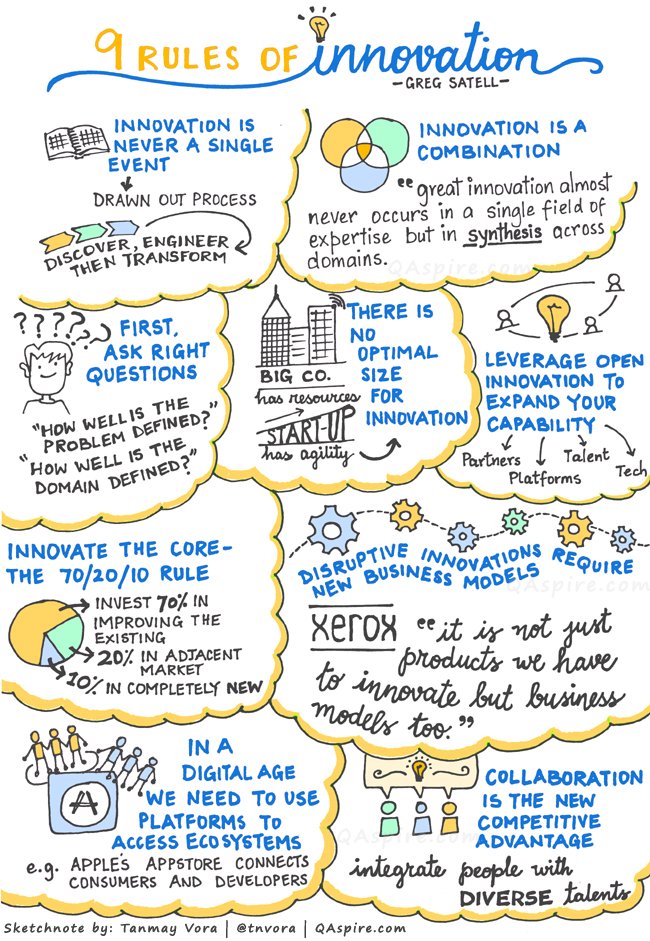 9 RULES OF innovation
-GREG SATELL-
INNOVATION IS
NEVER A SINGLE
EVENT
DRAWN OUT PROCESS
DISCOVER, ENGINEER
THEN TRANSFORM
INNOVATION IS A
COMBINATION
"great innovation almost
never occurs in a single field of
expertise but in synthesis across
domains.
QAspire.com
????
??
FIRST,
ASK RIGHT
QUESTIONS
"HOW WELL IS THE
PROBLEM DEFINED?"
"HOW WELL IS THE
DOMAIN DEFINED?"
THERE IS
NO
OPTIMAL
SIZE
FOR
INNOVATION
BIG CO.
has resources
START-UP
has agility
LEVERAGE OPEN
INNOVATION TO
EXPAND YOUR
CAPABILITY
Partners
Platforms
Talent
Tech
INNOVATE THE CORE-
THE 70/20/10 RULE
INVEST 70% IN
IMPROVING THE
EXISTING
20% IN ADJACENT
MARKET
10% IN COMPLETELY NEW
DISRUPTIVE INNOVATIONS REQUIRE
NEW BUSINESS MODELS
QAspire.com
xerox
"it is not just
products we have
to innovate but business
models too."
IN A
DIGITAL AGE
WE NEED TO USE
PLATFORMS TO
ACCESS ECOSYSTEMS
A
e.g. APPLE'S APPSTORE CONNECTS
CONSUMERS AND DEVELOPERS
COLLABORATION
IS THE NEW
COMPETITIVE
ADVANTAGE
QAspire.com
integrate people with
DIVERSE talents
Sketchnote by: Tanmay Vora | @tnvora | QAspire.com